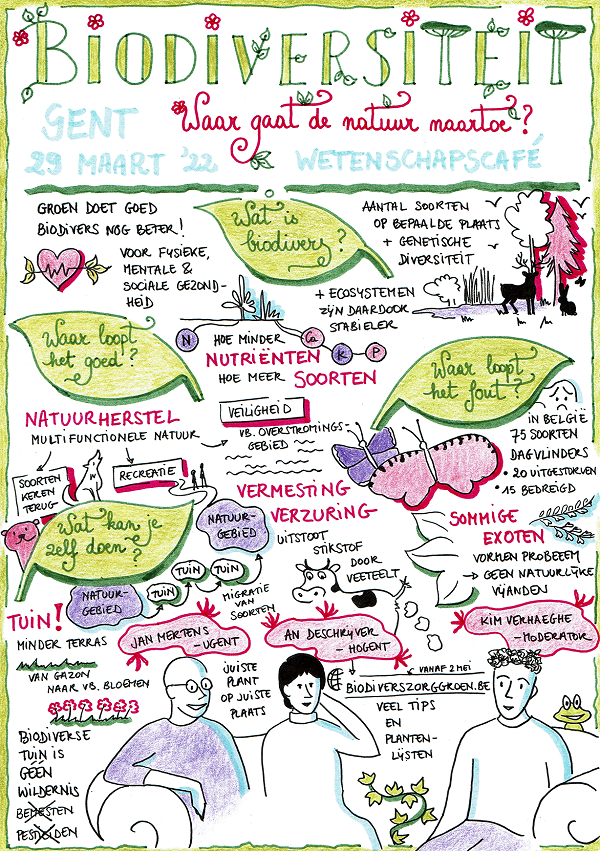 BIODIVERSITEIT
Waar gaat de natuur naartoe?
GENT
29 MAART '22
WETENSCHAPSCAFÉ
GROEN DOET GOED
BIODIVERS NOG BETER!
VOOR FYSIEKE,
MENTALE &
SOCIALE GEZOND-
HEID
Wat is
biodivers?
AANTAL SOORTEN
OP BEPAALDE PLAATS
+ GENETISCHE
DIVERSITEIT
+ ECOSYSTEMEN
ZIJN DAARDOOR
STABIELER
N
Ca
K
P
HOE MINDER
NUTRIËNTEN
HOE MEER SOORTEN
Waar loopt
het goed?
NATUURHERSTEL
MULTIFUNCTIONELE NATUUR
VEILIGHEID
VB. OVERSTROMINGS-
GEBIED
SOORTEN
KEREN
TERUG
RECREATIE
Waar loopt
het fout?
IN BELGIË
75 SOORTEN
DAGVLINDERS
• 20 UITGESTORVEN
• 15 BEDREIGD
VERMESTING
VERZURING
UITSTOOT
STIKSTOF
DOOR
VEETEELT
SOMMIGE
EXOTEN
VORMEN PROBEEM
→ GEEN NATUURLIJKE
VIJANDEN
Wat kan je
zelf doen?
NATUUR-
GEBIED
TUIN
TUIN
TUIN
NATUUR-
GEBIED
MIGRATIE
VAN
SOORTEN
TUIN!
MINDER TERRAS
VAN GAZON
NAAR VB. BLOEMEN
BIODIVERSE
TUIN IS
GEEN
WILDERNIS
BEMESTEN
PESTICIDEN
JAN MERTENS
- UGENT
AN DESCHRIJVER
- HOGENT
KIM VERHAEGHE
- MODERATOR
JUISTE
PLANT
OP JUISTE
PLAATS
VANAF 2 MEI
BIODIVERSZORGGROEN.BE
VEEL TIPS
EN
PLANTEN-
LIJSTEN